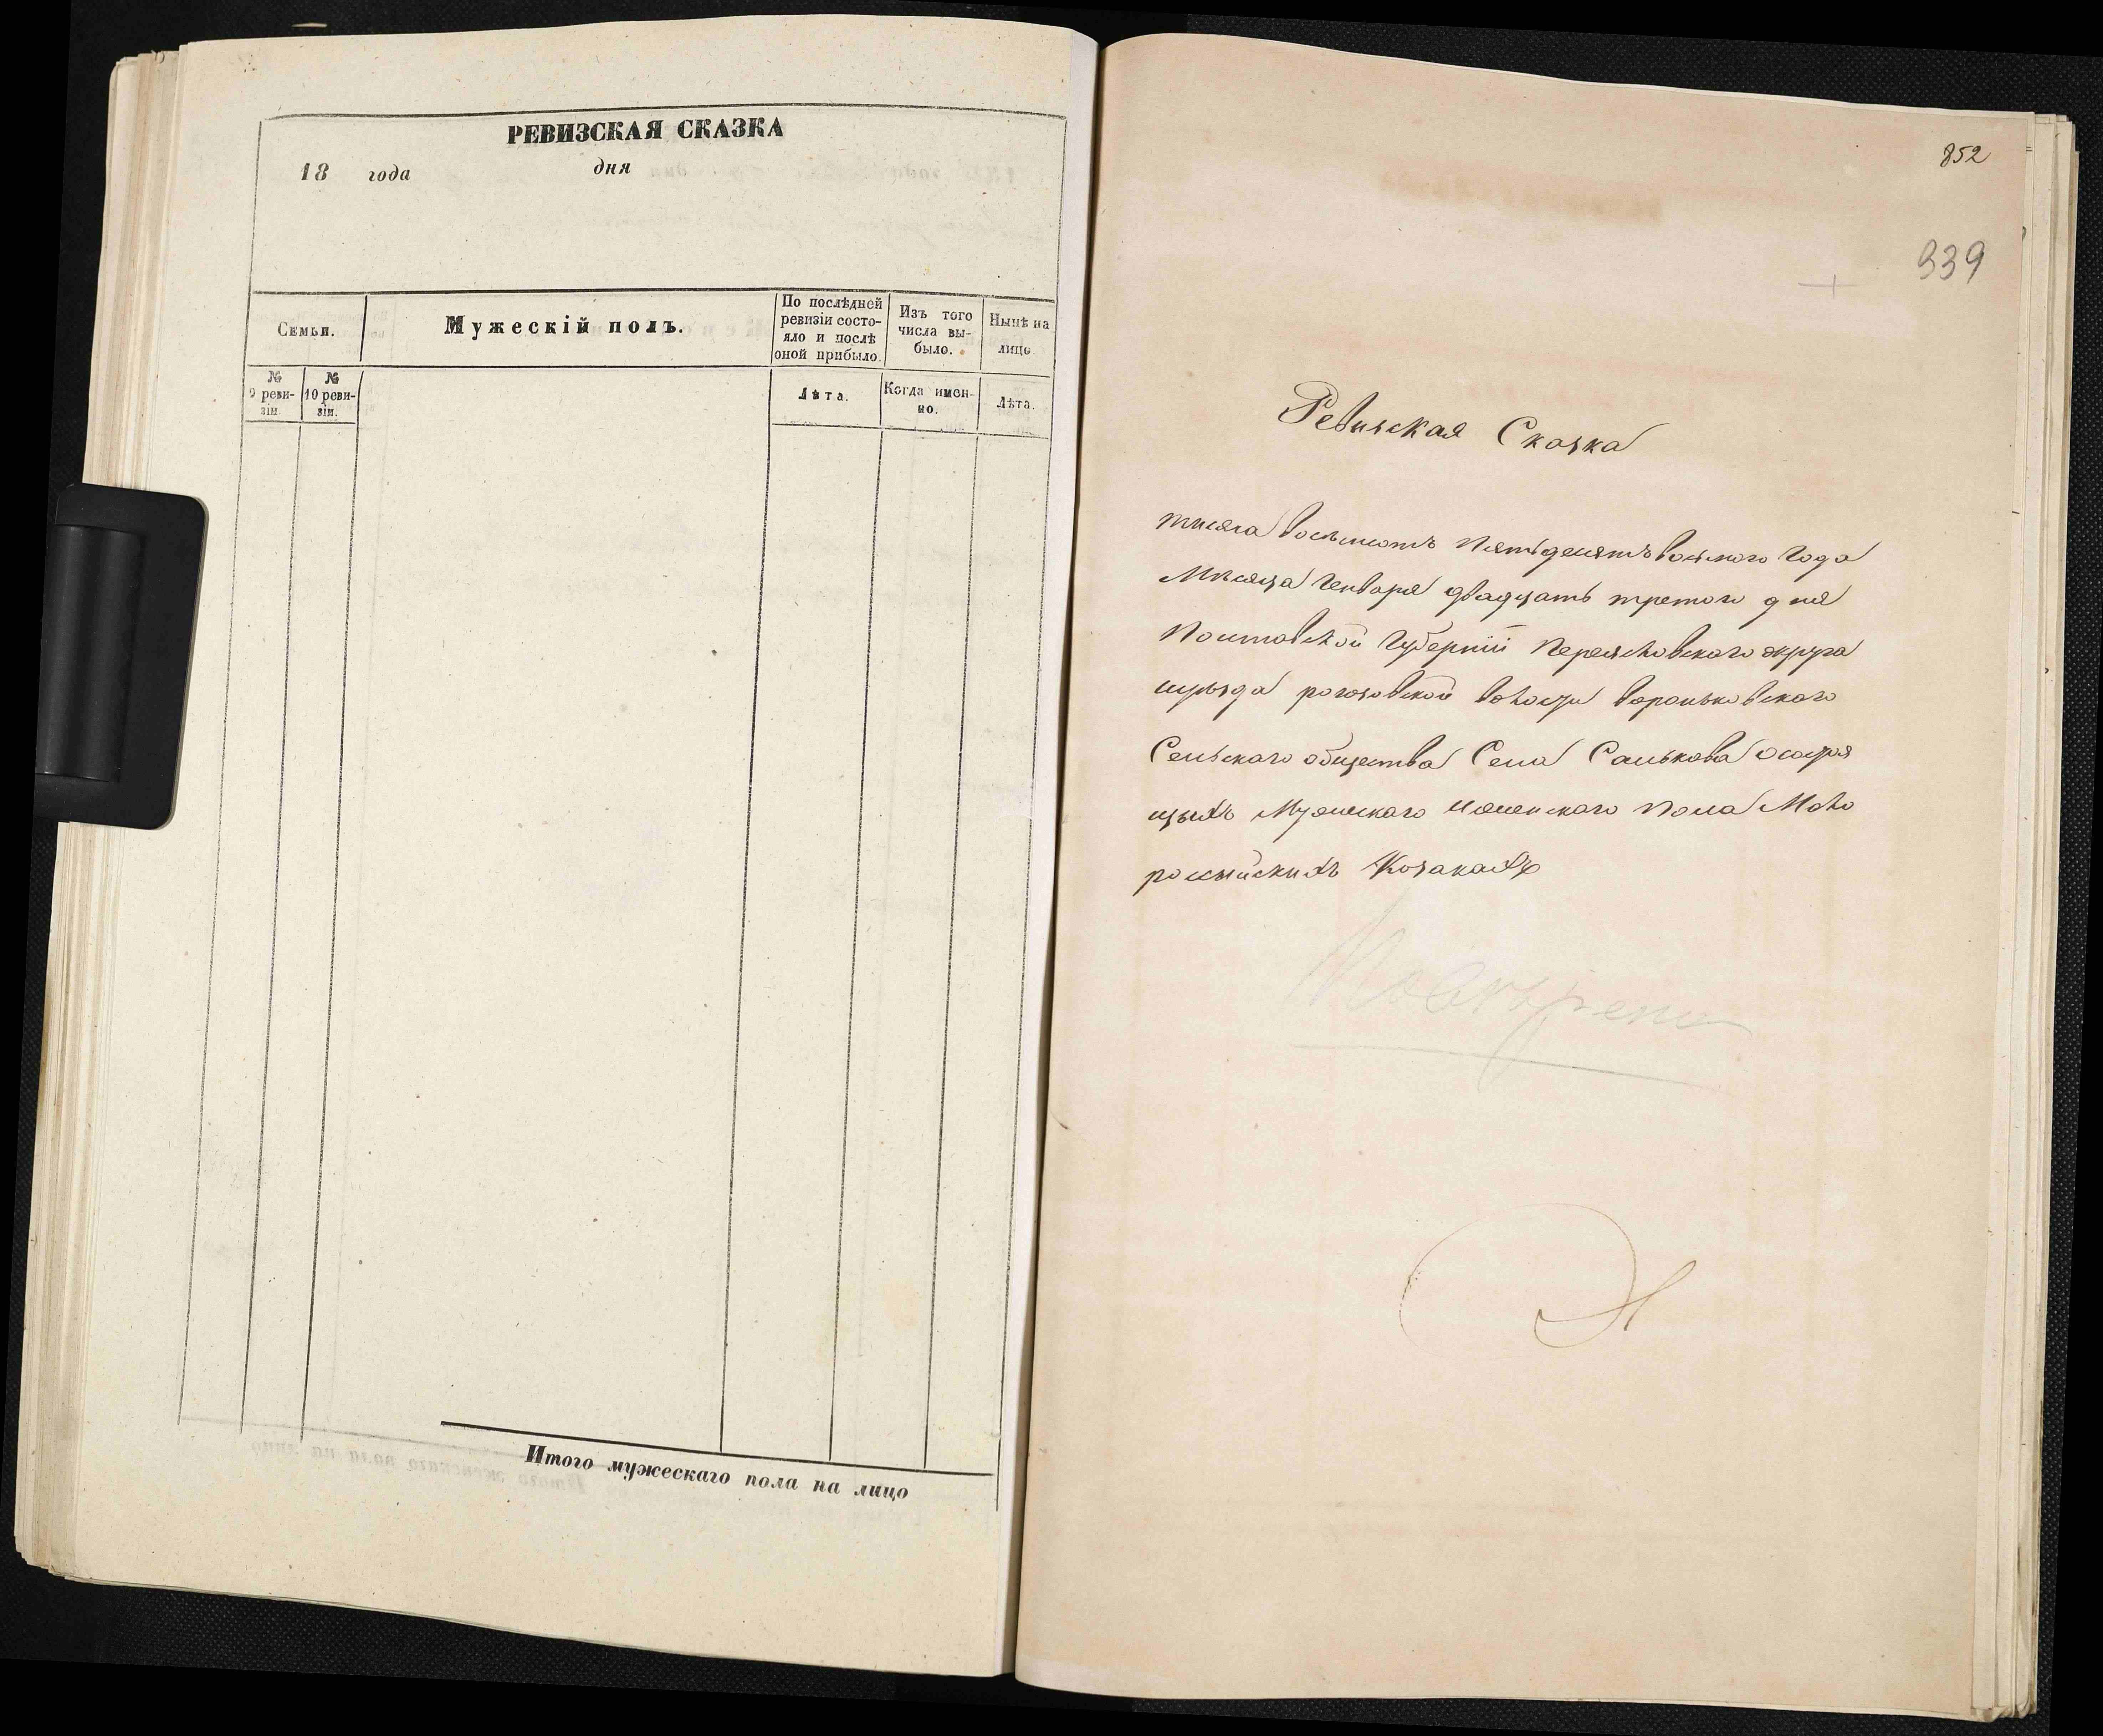 РЕВИЗСКАЯ СКАЗКА
18 года дня
Семьи.
Мужескій полъ.
По послѣдней
ревизіи состо-
яло и послѣ
оной прибыло.
Изъ того
числа вы-
было.
Нынѣ на
лицо.
№
9 реви-
зіи.
№
10 реви-
зіи.
Лѣта.
Когда имен-
но.
Лѣта.
Итого мужескаго пола на лицо
852
339
Ревизская Сказка
тысяча восемьсотъ пятьдесятъ восмого года
Мѣсяца Генваря двадцать третого дня
Полтавской Губерніи Переясловского округа
уѣзда рогозовской волости вороньковского
Сельскаго общества Села Салькова осостоя
щихъ Мужескаго иженскаго пола Мало
россыйскихъ Козакахъ